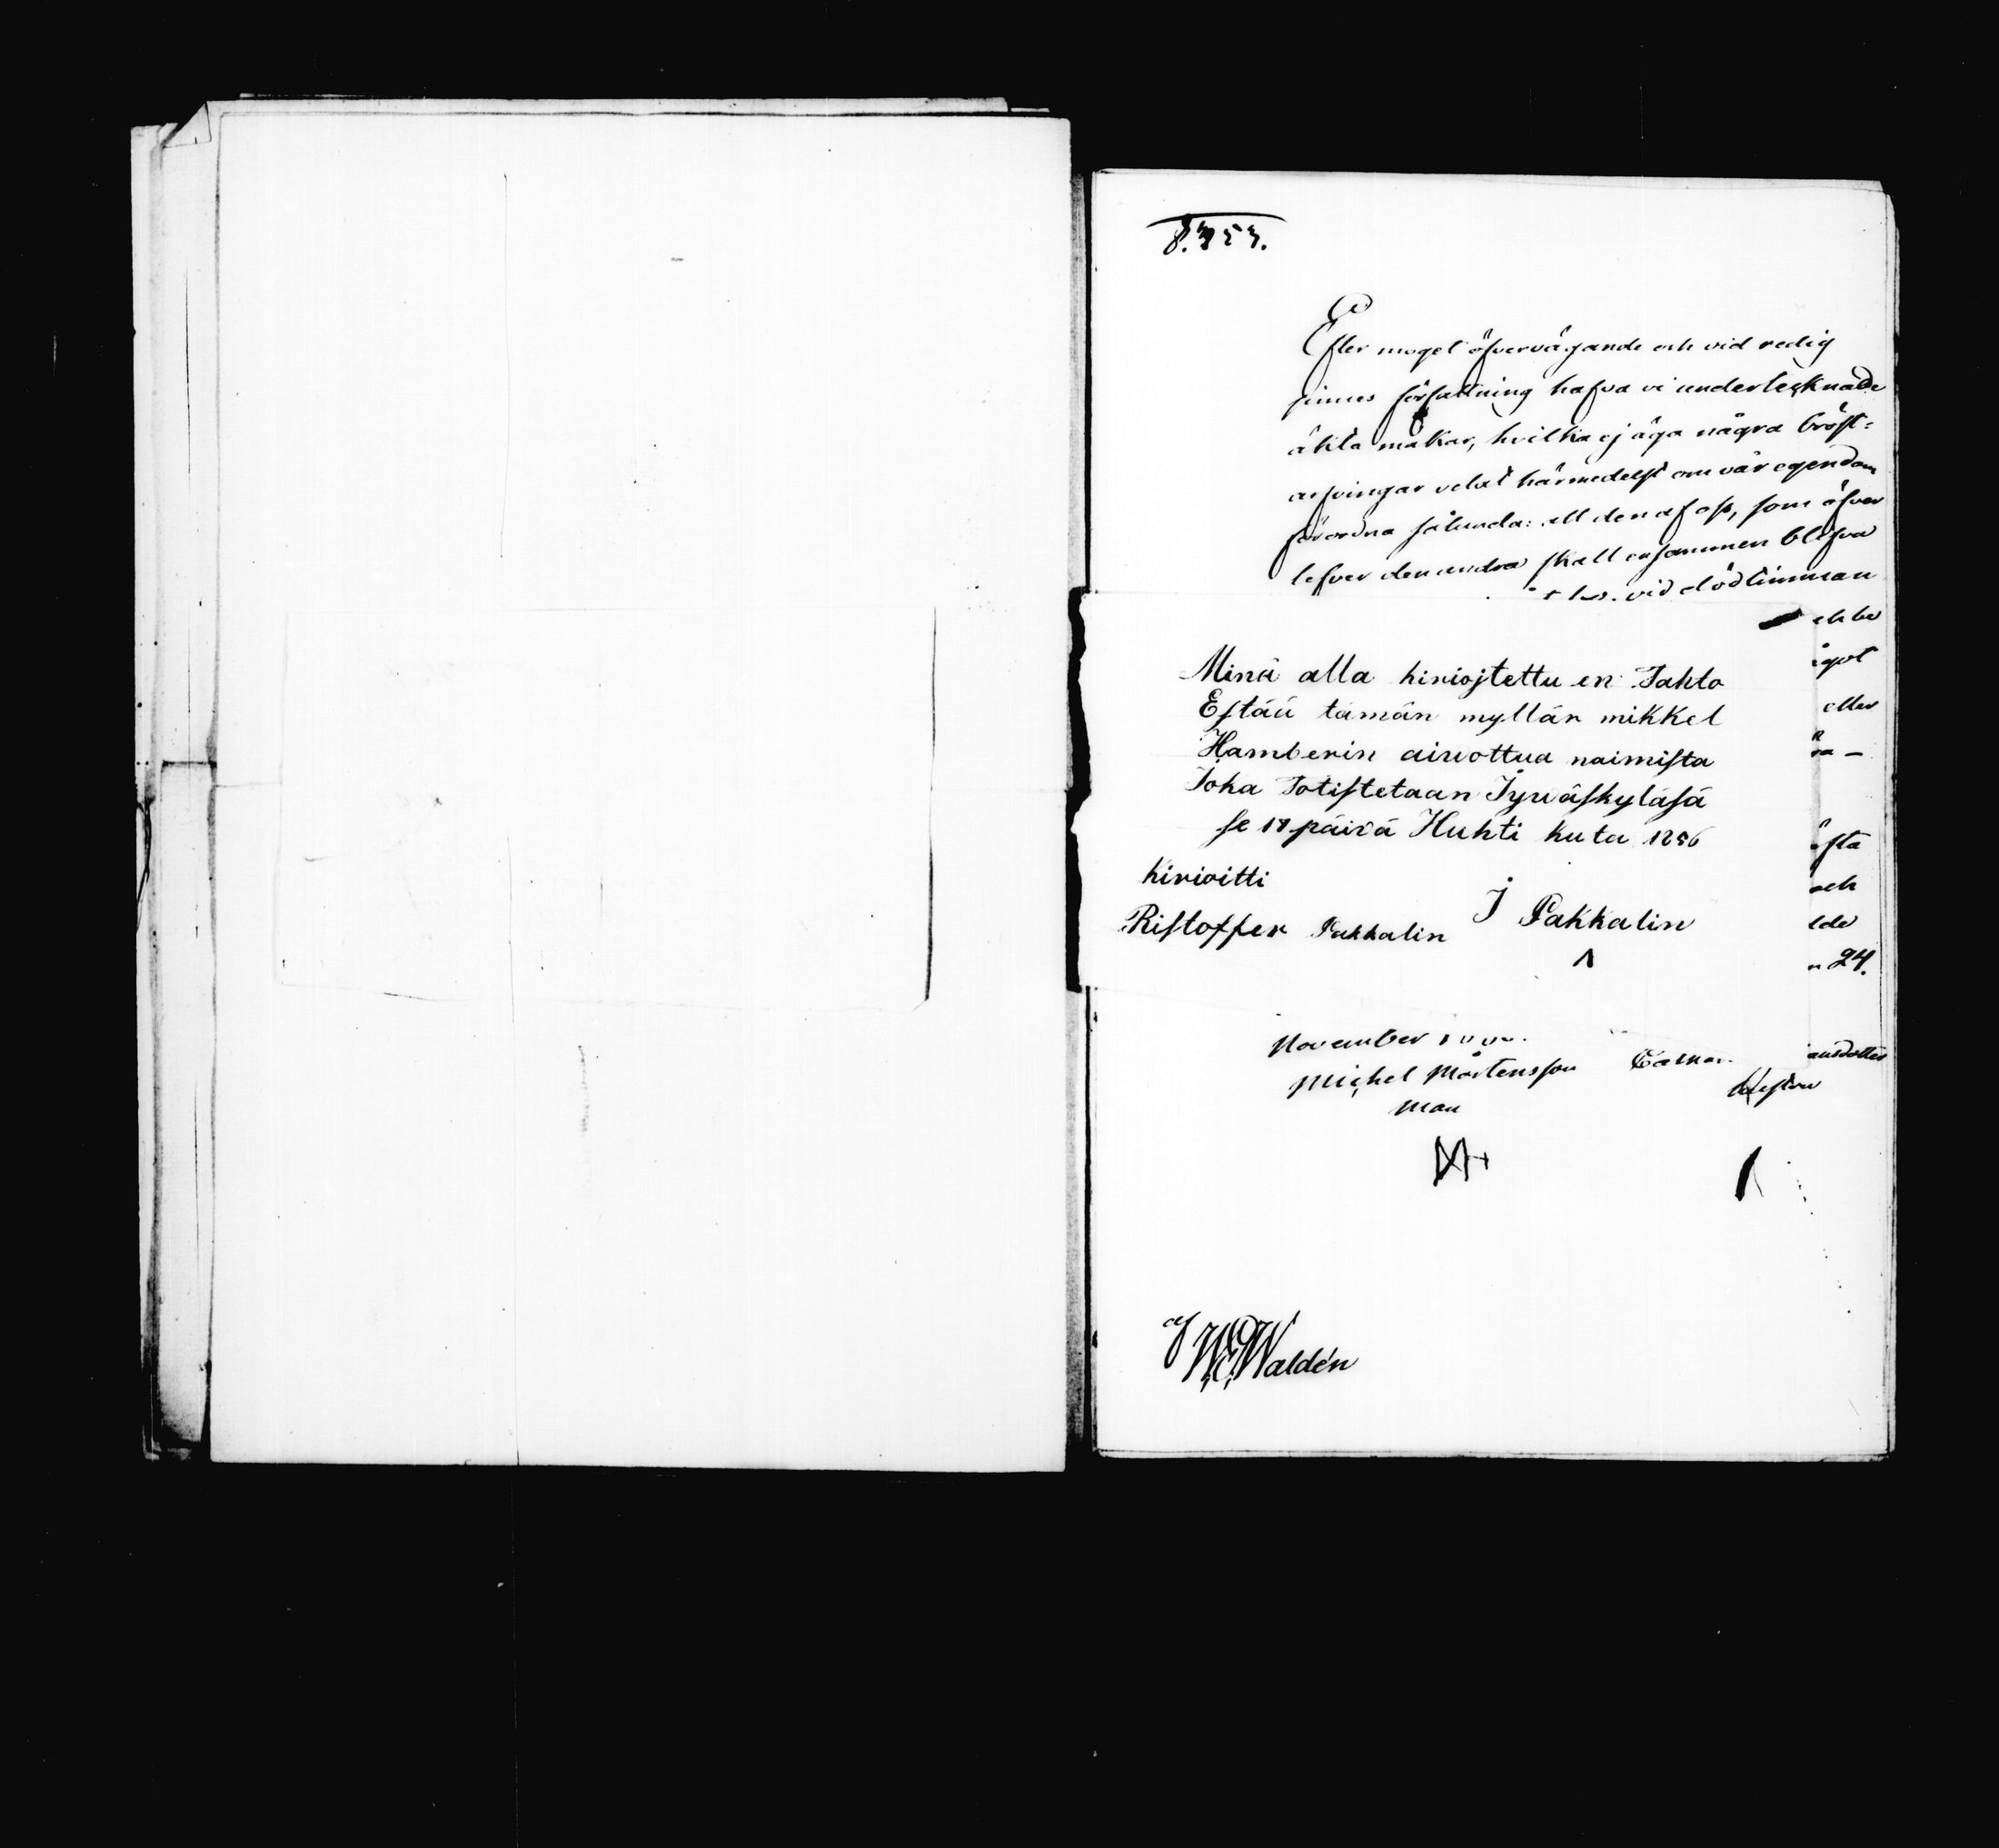 8.353.
Efter moget öfvervägande och vid redig
sinnes författning hafva vi undertecknade
äkta makar, hvilka ej äga några bröst-
arfvingar velat härmedelst om vår egendom
förordna sålunda: att den af oss, som öfver
lefver den andra skall ensammen blifva
vid dödtimman
eller
24.
Minä alla kirioitettu en Tahto
Estää tämän myllär mikkel
Hamberin airvottua naimista
Joka Totistetaan Jywäskyläsä
se 18 päivä Huhti kuta 1856
kirioitti
J Pakkalin
Ristoffer Pakkalin
November
Michel Mårtensson
Man
Hustru
af W.E.Waldén